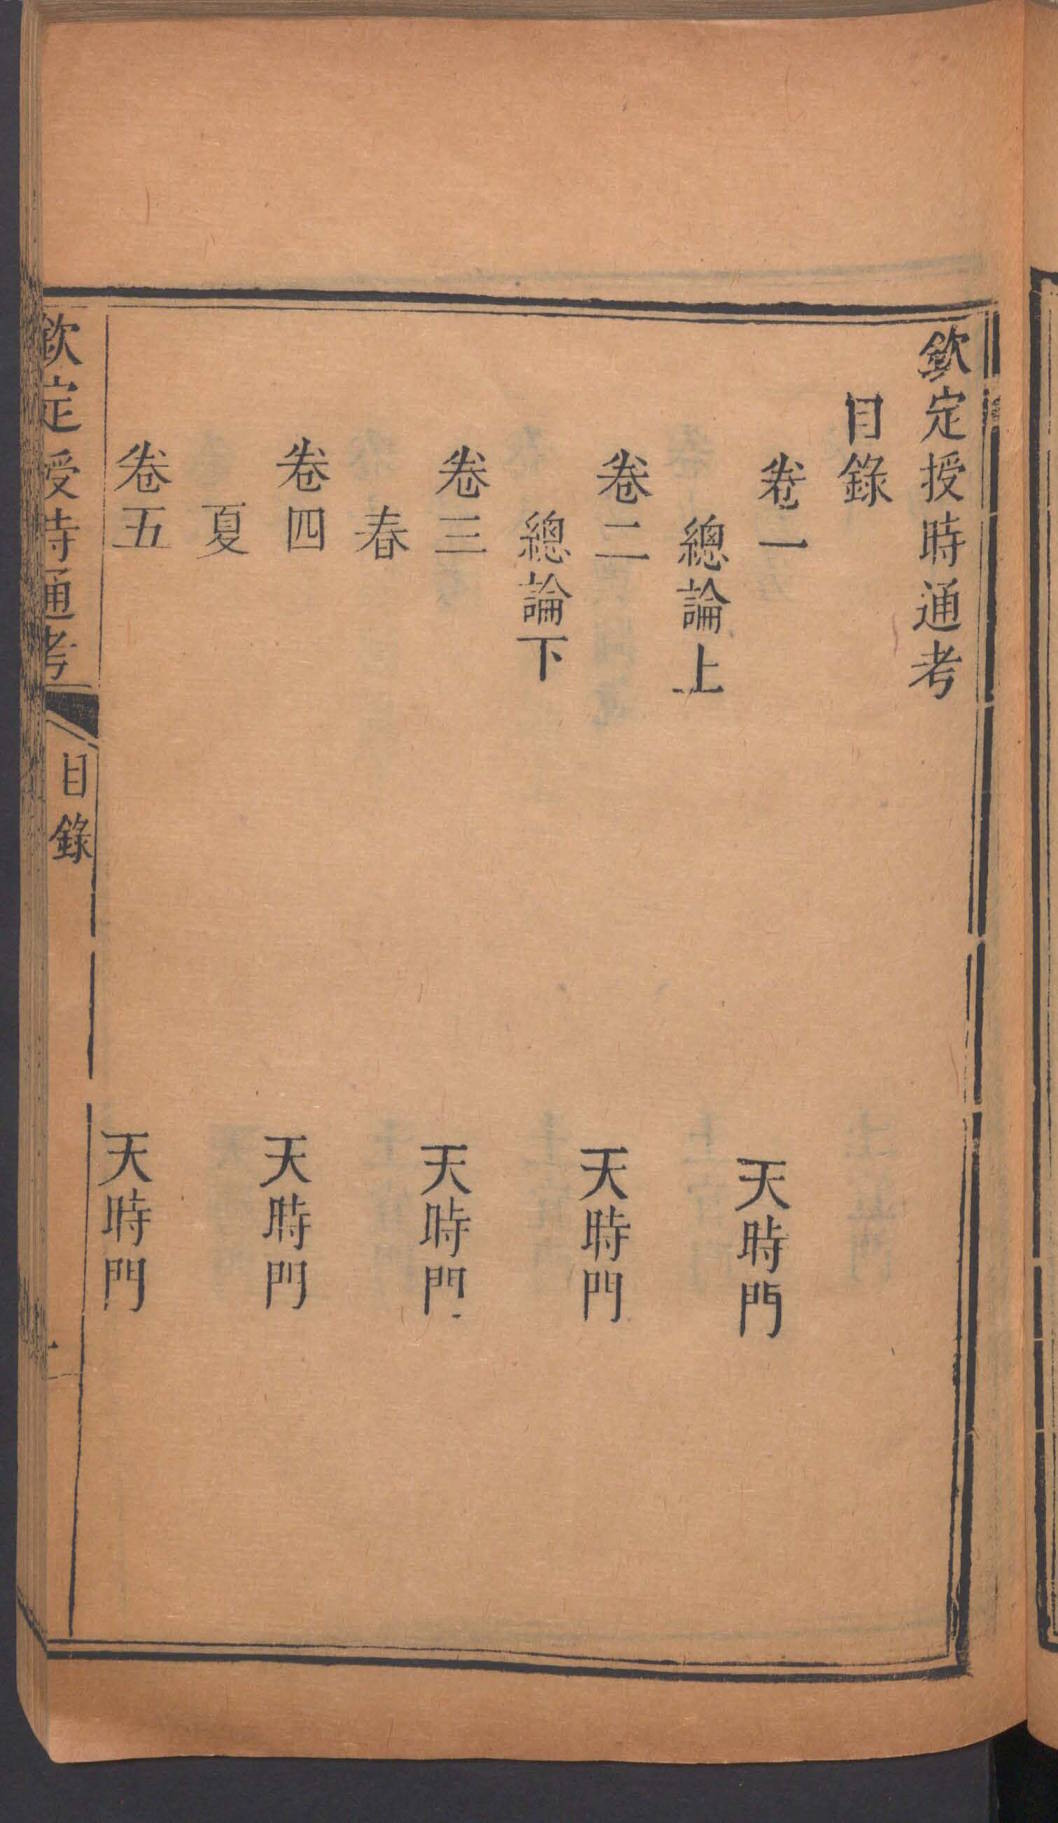 欽定授時通考
目錄
卷一 天時門
總論上
卷二 天時門
總論下
卷三 天時門
春
卷四 天時門
夏
卷五 天時門
欽定授時通考 目錄 一